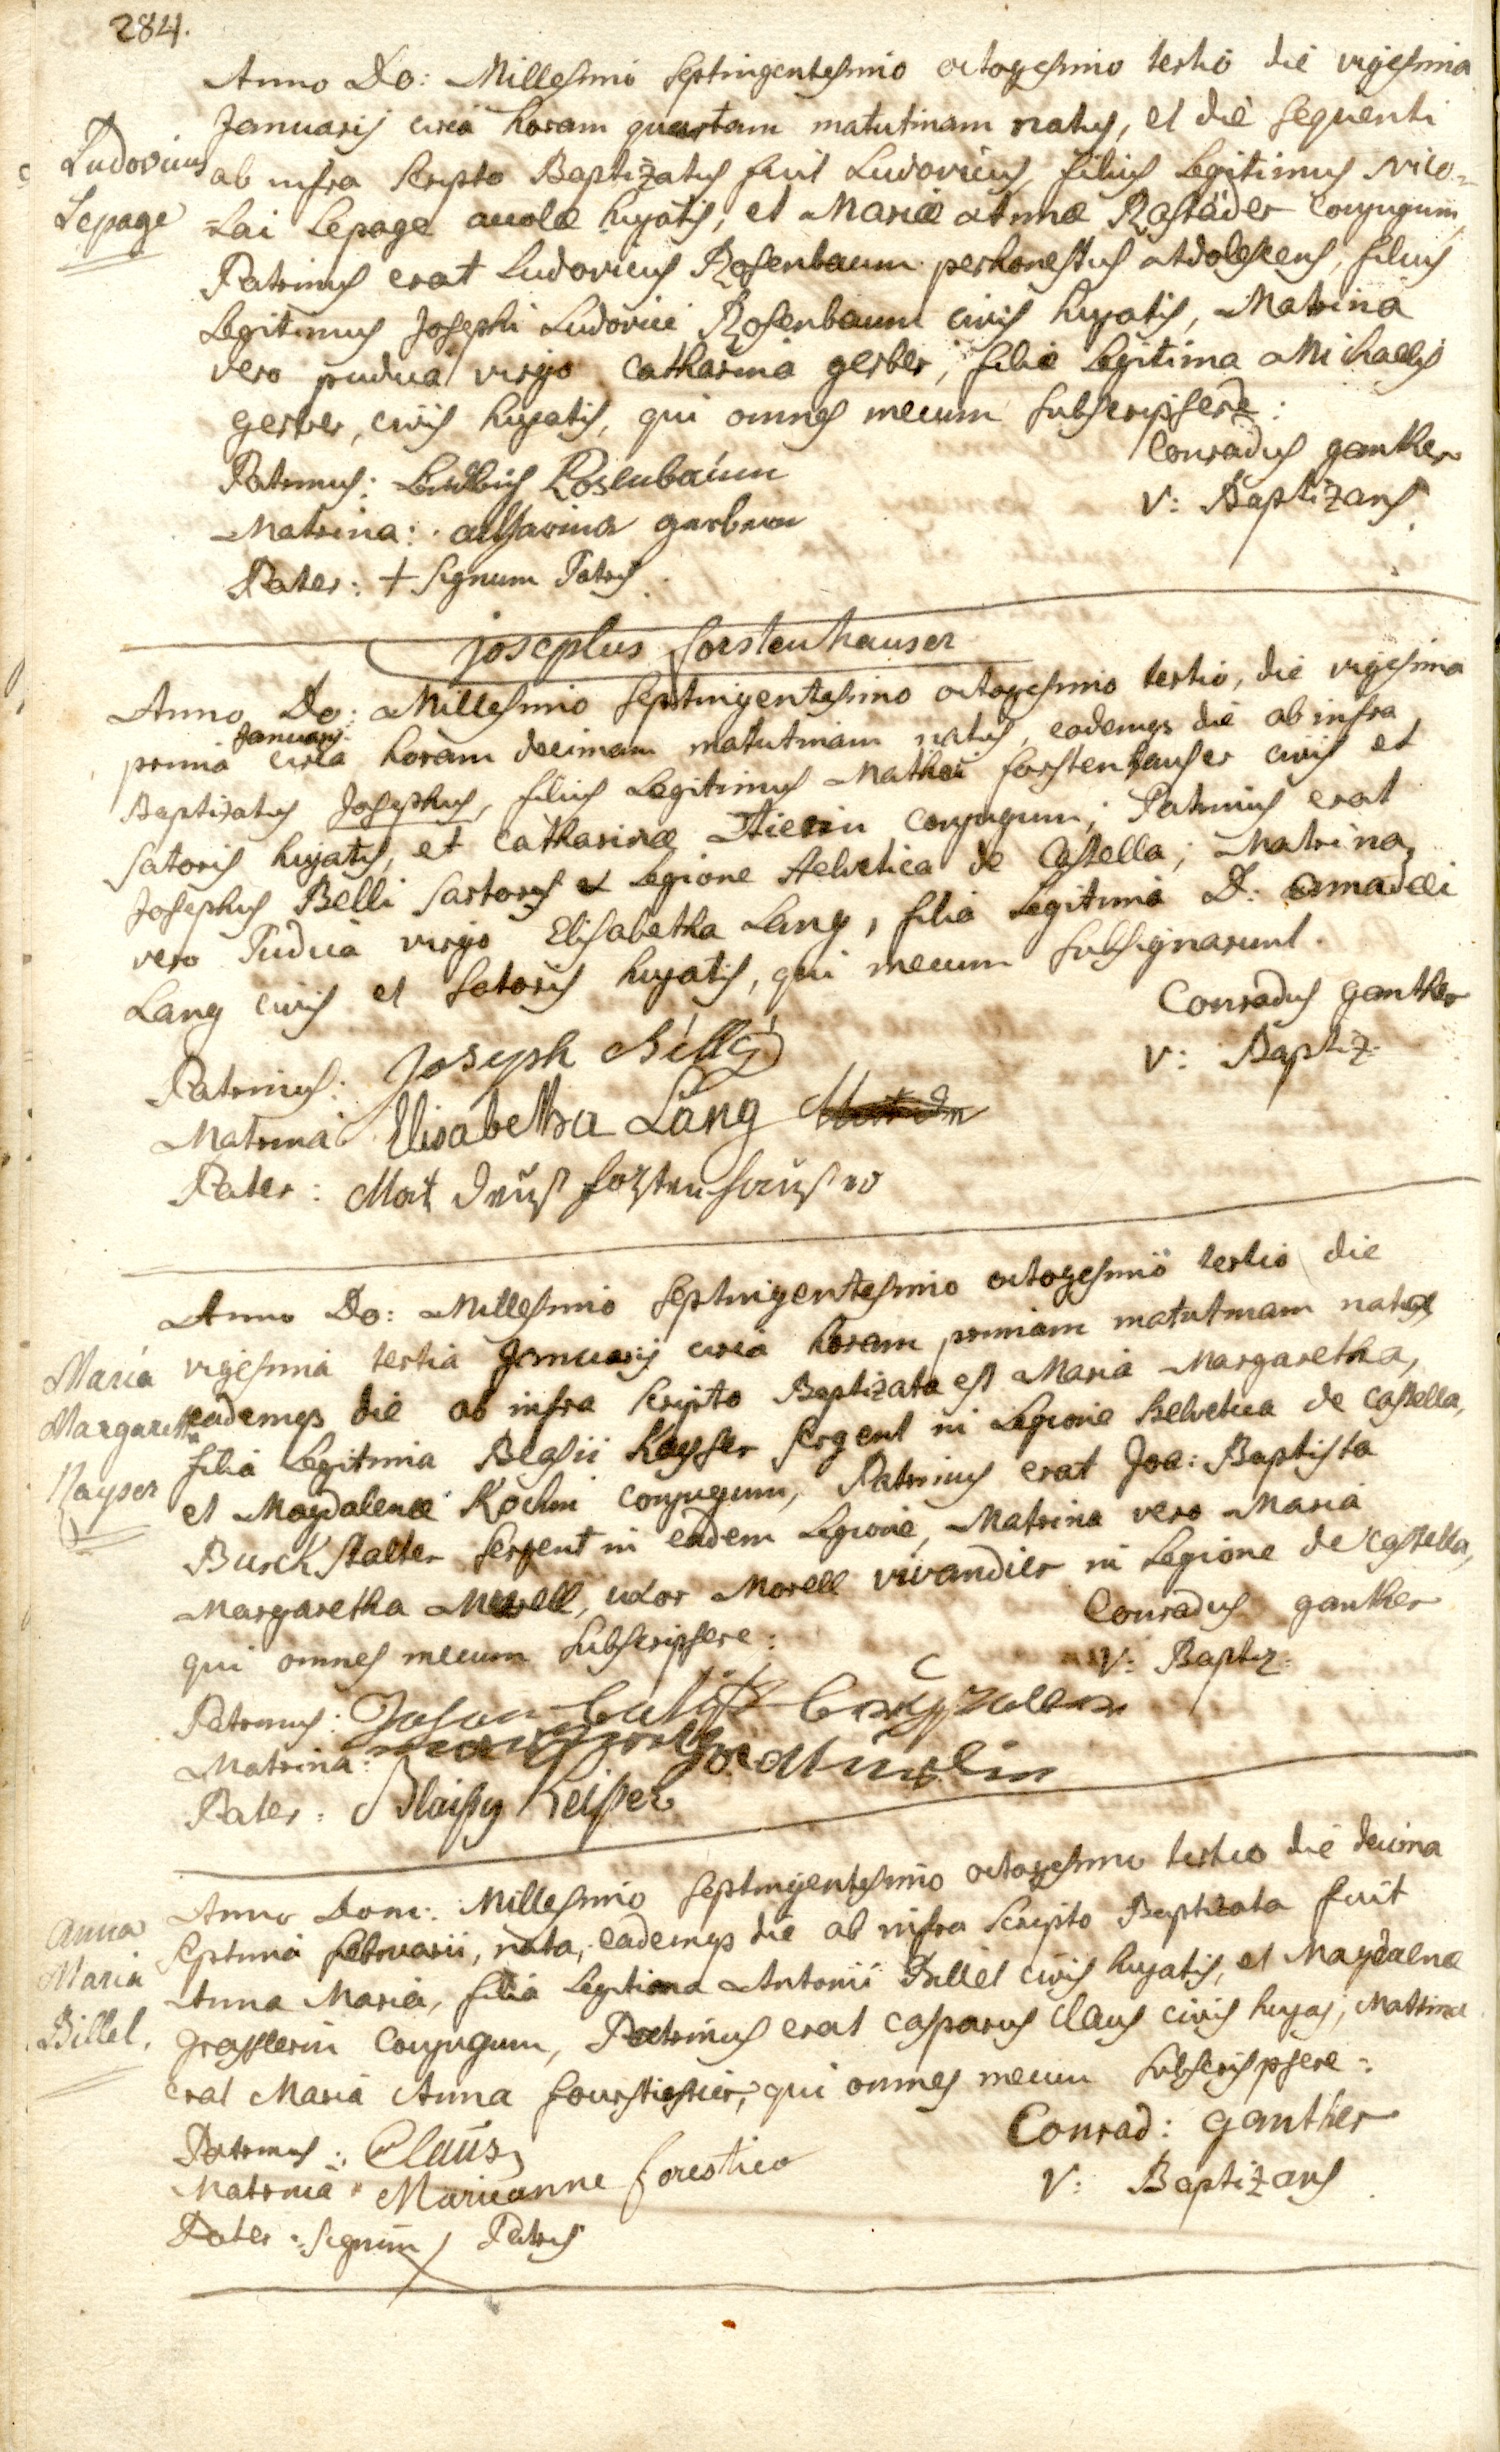 284.
Anno Do: Millesimo septingentesimo octogesimo tertio die vigesima
Januarij circa horam quartam matutinam natus, et die sequenti
Ludovicus
ab infra scripto Baptizatus fuit Ludovicus, filius Legitimus Nico=
Lepage
=Lai Lepage incolæ hujatis, et Mariæ Annæ Rastäder conjugum,
Patrinus erat Ludovicus Rosenbaum perhonestus Adolescens, filius
Legitimus Josephi Ludovici Rosenbaum civis hujatis, Matrina
vero pudica virgo Catharina gerber, filia Legitima Michaelis
gerber, civis hujatis, qui omnes mecum subscripsere:
Conradus ganther
V: Baptizans
Patrinus: Ludwig Rosenbaum
Matrina: catharina gerberin
Pater: + signum Patris.
josephus forstenhauser
Anno Do: Millesimo septingentesimo octogesimo tertio, die vigesima
prima Januarij circa horam decimam matutinam natus, eademqs die ab infra
Baptizatus Josephus, filius Legitimus Mathei forstenhauser civis et
satoris hujatis, et Catharinæ conjugum; Patrinus erat
Josephus Belli sartorus Legione Helvetica de Castella; Matrina,
vero Pudica virgo Elisabetha Lang, filia Legitima D: amadei
Lang civis et satoris hujatis, qui mecum subsignarunt.
Conradus ganther
V: Baptiz:
Patrinus: Joseph Billÿ
Matrina Elisabetha Lang
Pater: forstenhauser
Anno Do: Millesimo septingentesimo octogesimo tertio die
vigesima tertia Januarij circa horam primam matutinam nata
Maria
Margaretha
Kayser
eademqs die ab infra scripto Baptizata est Maria Margaretha,
filia Legitima Blasii Kaysser sergent in Legione helvetica de castella,
et Magdalenæ Kochin conjugum, Patrinus erat Joa: Baptista
Burckstalter sergent in eadem Legione, Matrina vero Maria
Margaretha Morell, uxor Morell vivandier in Legione de castella,
qui omnes mecum subscripsere:
Conradus ganther
V: Baptiz:
Patrinus: Johan
Matrina:
Pater: Blaissy Keisser
Anno Dom: Millesimo septingentesimo octogesimo tertio die decima
septima februarii, nata, eademqs die ab infra scripto Baptizata fuit
Anna
Maria
Billet.
Anna Maria, filia Legitima Antonii Billet civis hujatis, et Magdalenæ
grasslerin conjugum, Patrinus erat casparus Claus civis hujas, Matrina
erat Maria Anna qui omnes mecum subscripsere:
Conrad: ganther
V: Baptizans
Patrinus: Claus
Matrina: Marianne forestier
Pater: signum Patris